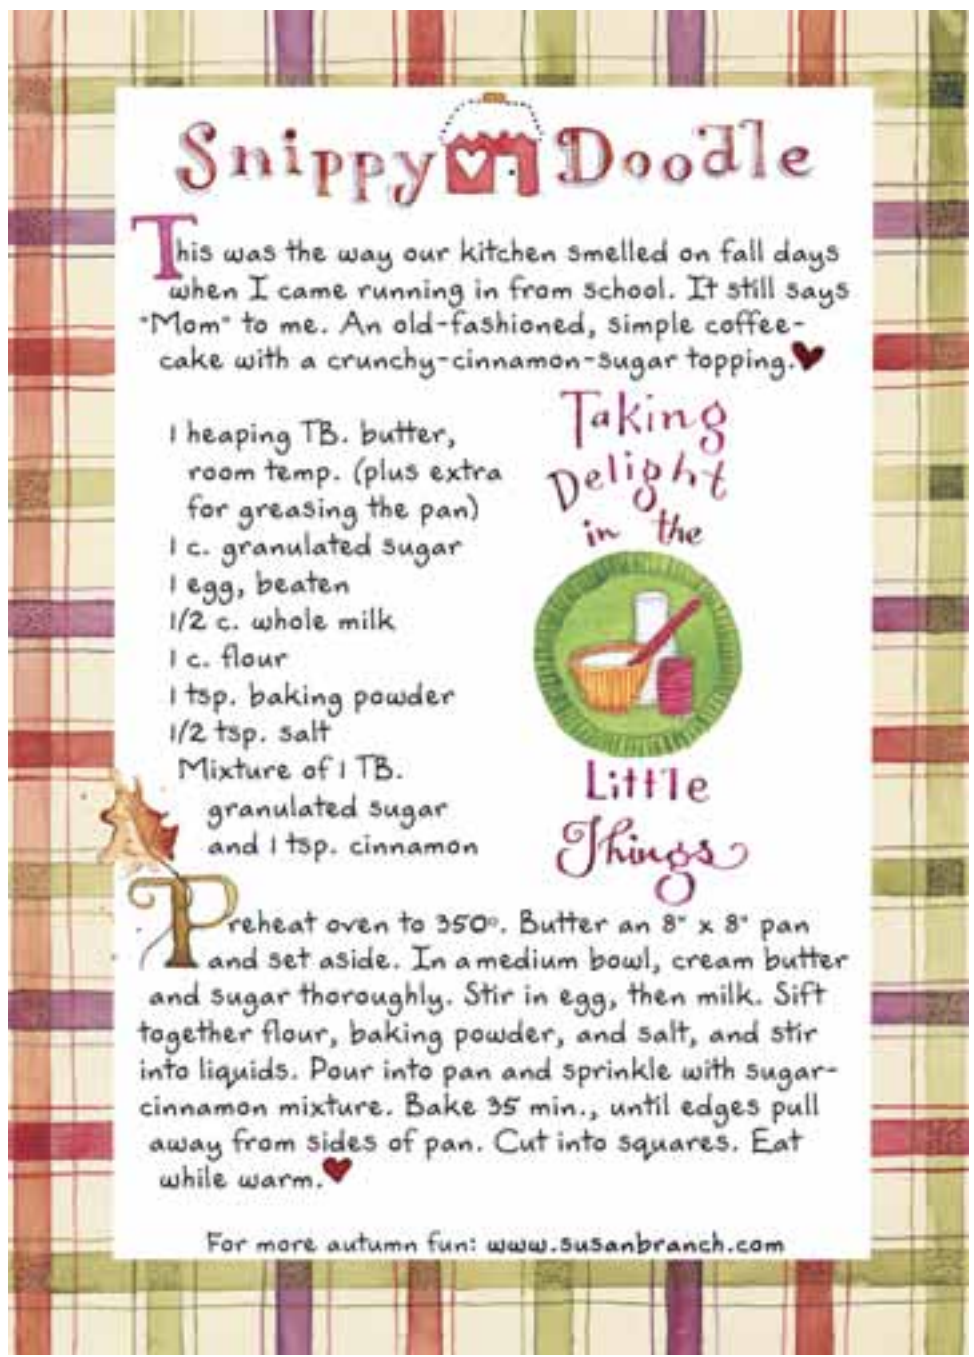 Snippy Doodle
This was the way our kitchen smelled on fall days
when I came running in from school. It still says
"Mom" to me. An old-fashioned, simple coffee-
cake with a crunchy-cinnamon-sugar topping.
1 heaping TB. butter,
room temp. (plus extra
for greasing the pan)
1 c. granulated sugar
1 egg, beaten
1/2 c. whole milk
1 c. flour
1 tsp. baking powder
1/2 tsp. salt
Mixture of 1 TB.
granulated sugar
and 1 tsp. cinnamon
Taking
Delight
in the
Little
Things
Preheat oven to 350°. Butter an 8" x 8" pan
and set aside. In a medium bowl, cream butter
and sugar thoroughly. Stir in egg, then milk. Sift
together flour, baking powder, and salt, and stir
into liquids. Pour into pan and sprinkle with sugar-
cinnamon mixture. Bake 35 min., until edges pull
away from sides of pan. Cut into squares. Eat
while warm.
For more autumn fun: www.susanbranch.com